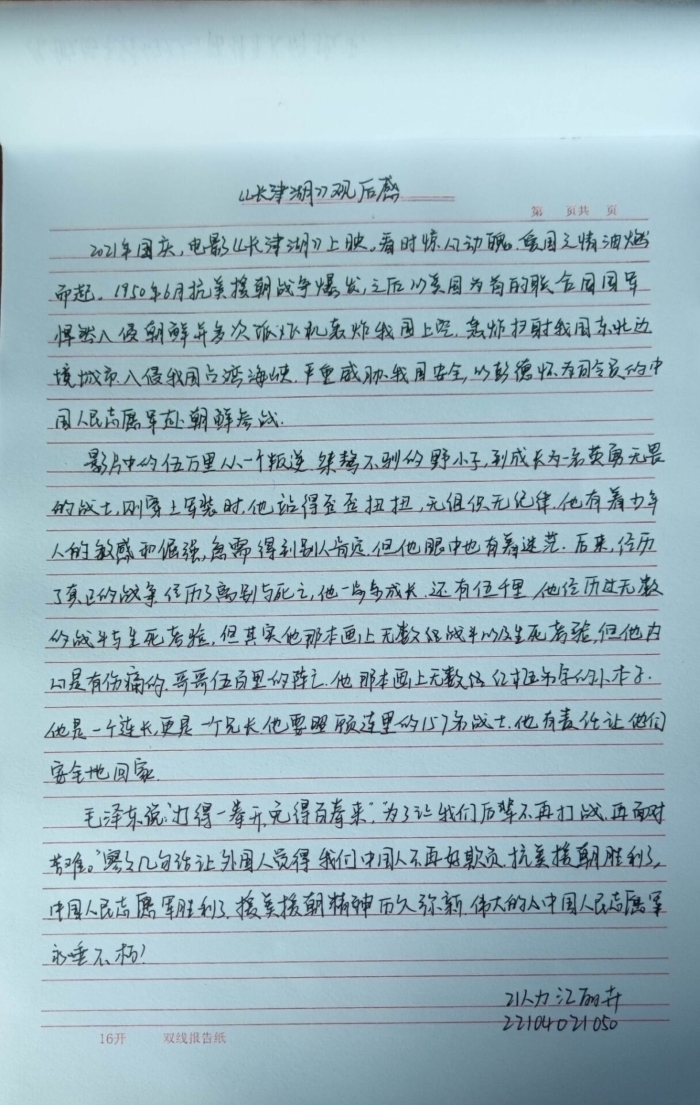 《长津湖》观后感
第 页共 页
2021年国庆，电影《长津湖》上映，看时惊心动魄。爱国之情油燃
而起。1950年6月抗美援朝战争爆发，之后以美国为首的联合国国军
悍然入侵朝鲜并多次派炸机轰炸我国上空，轰炸扫射我国东北边
境城市，入侵我国台湾海峡，严重威胁我国安全，以彭德怀为司令员的中
国人民志愿军赴朝鲜参战.
影片中的伍万里从一个叛逆、桀骜不驯的野小子，到成长为一名英勇无畏
的战士，刚穿上军装时，他站得歪歪扭扭，无组织无纪律，他有着少年
人的敏感和倔强，急需得到别人肯定，但他眼中也有着迷茫. 后来，经历
了真正的战争，经历了离别与死亡，他一步步成长. 还有伍千里，他经历过无数
的战斗与生死考验，但其实他那本画上无数红战斗以及生死考验，但他内
心是有伤痛的，哥哥伍百里的阵亡，他那本画上无数红框名字的小本子.
他是一个连长，更是一个兄长，他要照顾连里的157名战士，他有责任让他们
安全地回家.
毛泽东说“打得一拳开，免得百拳来”，“为了让我们后辈不再打战，再面对
苦难。”寥寥几句话让外国人觉得我们中国人不再好欺负，抗美援朝胜利了，
中国人民志愿军胜利了，援美援朝精神历久弥新，伟大的中国人民志愿军
永垂不朽！
21人力 江丽卉
22104021050
16开 双线报告纸